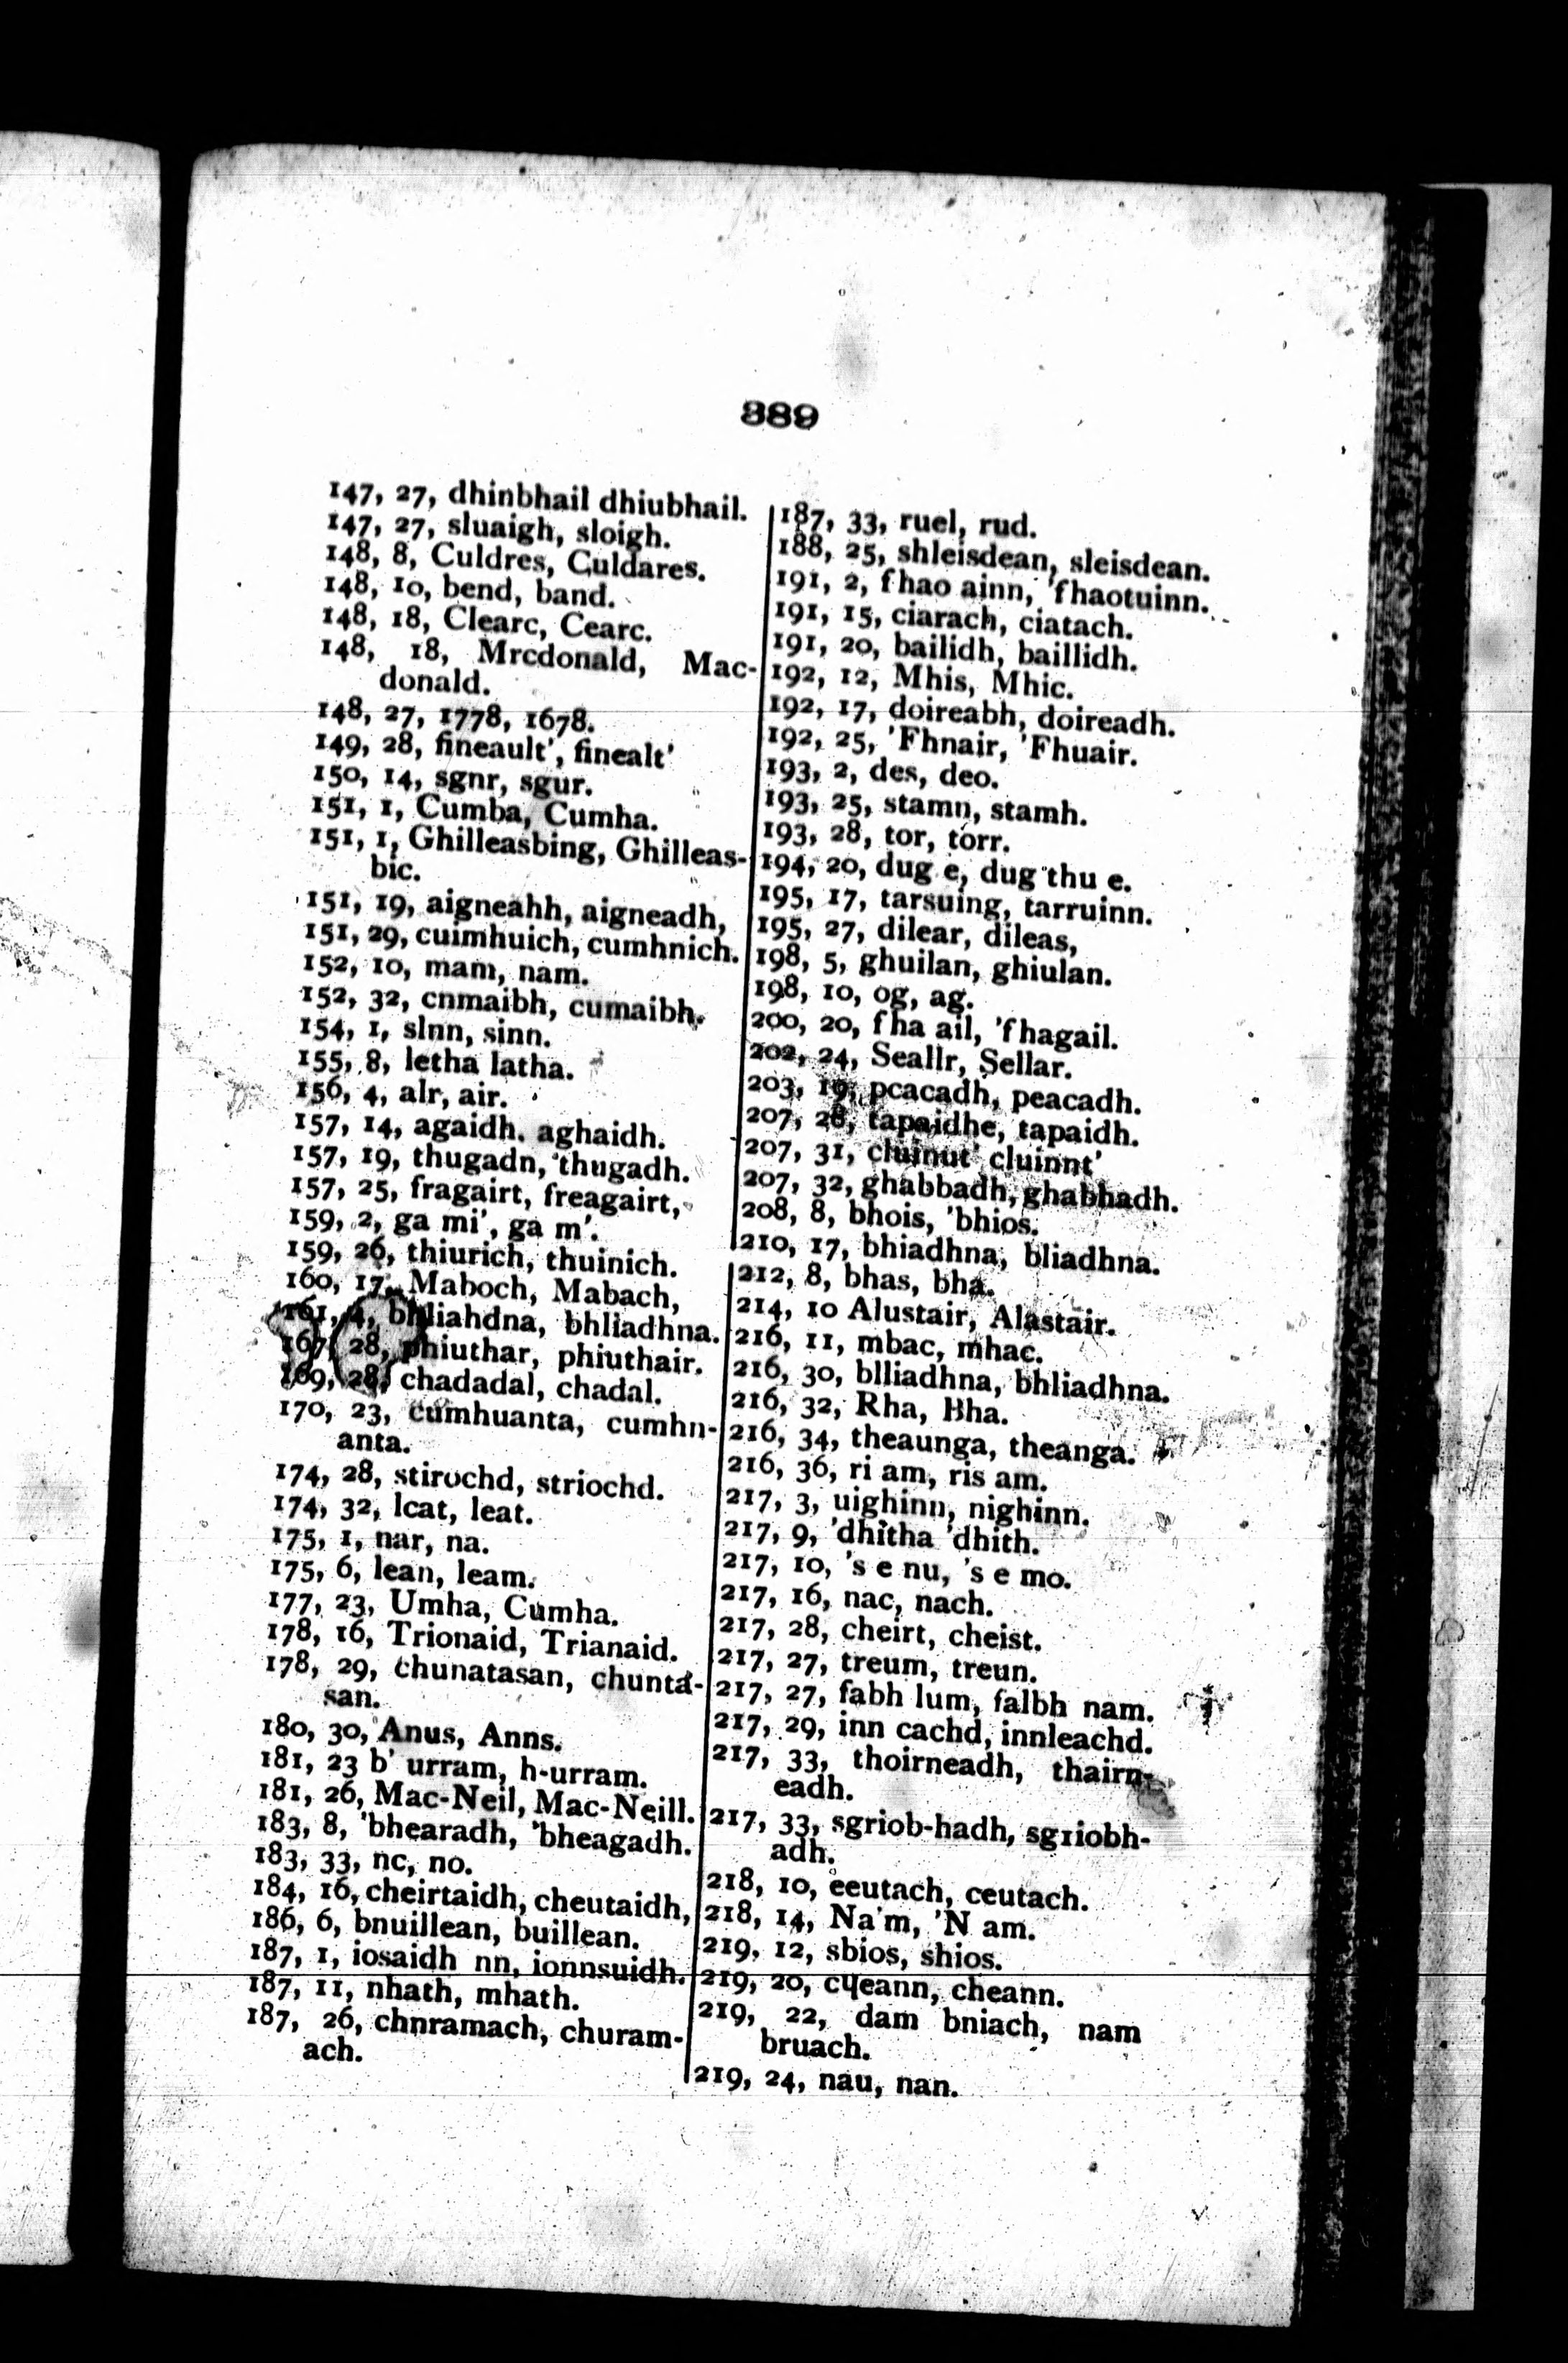 389
147, 27, dhinbhail dhiubhail.
147, 27, sluaigh, sloigh.
148, 8, Culdres, Culdares.
148, 10, bend, band.
148, 18, Clearc, Cearc.
148, 18, Mrcdonald, Mac-
donald.
148, 27, 1778, 1678.
149, 28, fineault', finealt'
150, 14, sgnr, sgur.
151, 1, Cumba, Cumha.
151, 1, Ghilleasbing, Ghilleas-
bic.
151, 19, aigneahh, aigneadh,
151, 29, cuimhuich, cumhnich.
152, 10, mam, nam.
152, 32, cnmaibh, cumaibh.
154, 1, slnn, sinn.
155, 8, letha latha.
156, 4, alr, air.
157, 14, agaidh. aghaidh.
157, 19, thugadn, thugadh.
157, 25, fragairt, freagairt,
159, 2, ga mi', ga m'.
159, 26, thiurich, thuinich.
160, 17, Maboch, Mabach,
161, 4, bhliahdna, bhliadhna.
167, 28, phiuthar, phiuthair.
169, 28, chadadal, chadal.
170, 23, cumhuanta, cumhn-
anta.
174, 28, stirochd, striochd.
174, 32, lcat, leat.
175, 1, nar, na.
175, 6, lean, leam.
177, 23, Umha, Cumha.
178, 16, Trionaid, Trianaid.
178, 29, chunatasan, chunta-
san.
180, 30, Anus, Anns.
181, 23 b' urram, h-urram.
181, 26, Mac-Neil, Mac-Neill.
183, 8, 'bhearadh, 'bheagadh.
183, 33, nc, no.
184, 16, cheirtaidh, cheutaidh,
186, 6, bnuillean, buillean.
187, 1, iosaidh nn, ionnsuidh.
187, 11, nhath, mhath.
187, 26, chnramach, churam-
ach.
187, 33, ruel, rud.
188, 25, shleisdean, sleisdean.
191, 2, fhao ainn, 'fhaotuinn.
191, 15, ciarach, ciatach.
191, 20, bailidh, baillidh.
192, 12, Mhis, Mhic.
192, 17, doireabh, doireadh.
192, 25, 'Fhnair, 'Fhuair.
193, 2, des, deo.
193, 25, stamn, stamh.
193, 28, tor, torr.
194, 20, dug e, dug thu e.
195, 17, tarsuing, tarruinn.
195, 27, dilear, dileas,
198, 5, ghuilan, ghiulan.
198, 10, og, ag.
200, 20, fha ail, 'fhagail.
202, 24, Seallr, Sellar.
203, 19, pcacadh, peacadh.
207, 28, tapaidhe, tapaidh.
207, 31, cluinut' cluinnt'
207, 32, ghabbadh, ghabhadh.
208, 8, bhois, 'bhios.
210, 17, bhiadhna, bliadhna.
212, 8, bhas, bha.
214, 10 Alustair, Alastair.
216, 11, mbac, mhac.
216, 30, blliadhna, bhliadhna.
216, 32, Rha, Bha.
216, 34, theaunga, theanga.
216, 36, ri am, ris am.
217, 3, uighinn, nighinn.
217, 9, 'dhitha 'dhith.
217, 10, 's e nu, 's e mo.
217, 16, nac, nach.
217, 28, cheirt, cheist.
217, 27, treum, treun.
217, 27, fabh lum, falbh nam.
217, 29, inn cachd, innleachd.
217, 33, thoirneadh, thairn-
eadh.
217, 33, sgriob-hadh, sgriobh-
adh.
218, 10, eeutach, ceutach.
218, 14, Na'm, 'N am.
219, 12, sbios, shios.
219, 20, cyeann, cheann.
219, 22, dam bniach, nam
bruach.
219, 24, nau, nan.